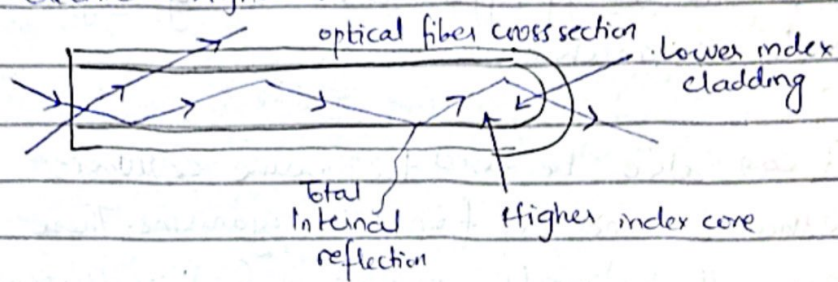 optical fiber cross section
Lower index
cladding
Total
Internal
reflection
Higher index core